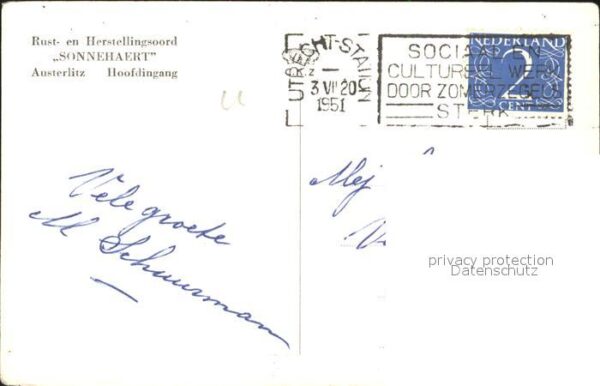 Rust- en Herstellingsoord
„SONNEHAERT"
Austerlitz Hoofdingang
UTRECHT-STATION
3 VII 20
1951
SOCIAAL EN
CULTUREEL WERK
DOOR ZOMERZEGELS
STERK
NEDERLAND
2
CENT
Vele groete
M Schuurman
Mej
V
privacy protection
Datenschutz